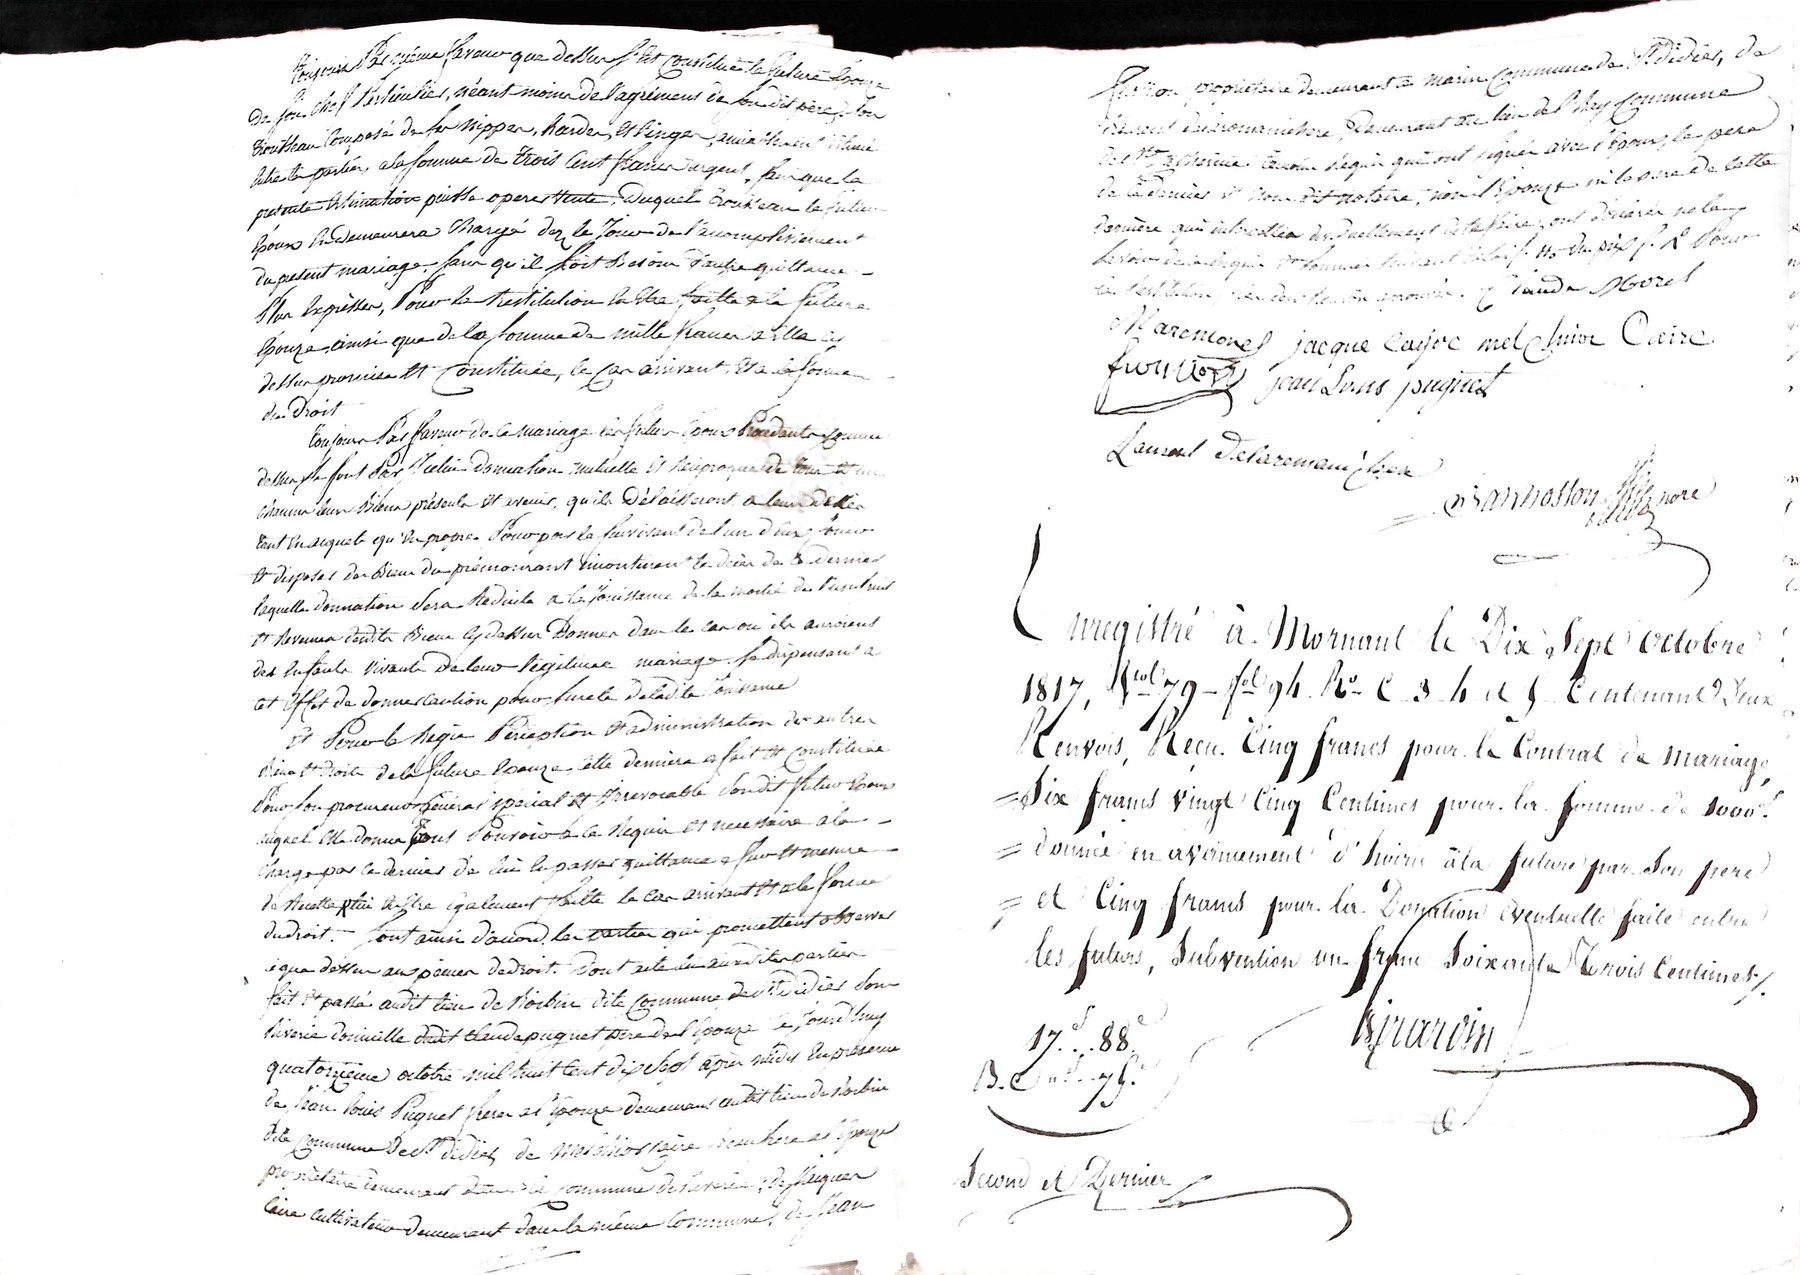 toujours Par même faveur que dessus s'est constitué la future Epouze
de son chef Particulier, néantmoins de l'agrément de son dit père, son
trousseau composé de ses nippes, hardes, et Linges, amiablement estimé
entre les parties, a la somme de trois Cent francs argent, sans que la
presente Estimation puisse operer Vente, Duquel trousseau le futur
Epoux En demeurera Chargé dez le Jour de l'acomplissement
du présent mariage, sans qu'il soit Besoin d'autre quittance
Plus Expresse, Pour la Restitution En être faitte a la future
Epouze, ainsi que de la somme de mille francs a elle cy
dessus promise et Constituée, le cas arrivant, Et a la forme
du Droit
toujours Par faveur de ce mariage les futurs Epoux Procedants Comme
dessus se font Par Icelui donnation mutuelle et Réciproque de tous et un
chacun leurs Biens présents et avenir, qu'ils Délaisseront a leur décès
tant En acquets qu'En propre, Pour par le survivant de l'un d'Eux, Jouir
et disposer des Biens du prémourant incontinent le décès de ce dernier
laquelle donnation sera Réduite a la Jouissance de la moitié de l'usufruit
et Revenus desdits Biens cy dessus Donnés dans le cas où ils auroient
des Enfants vivants de leur légitime mariage. se dispensant a
cet effet de donner caution pour sureté de ladite Jouissance
Et Pour la Régie Perception et administration des autres
Biens et droits de la future Epouze, cette derniere a fait et constitué
Pour son procureur Général spécial et Irrevocable son dit futur Epoux
auquel Elle donne tous Pouvoirs a ce Requis et necessaire a la
charge par ce dernier de lui En passer quittance a fur et mesure
de Recette lui Estre également faitte le cas arrivant et a la forme
du droit. Sont ainsi d'acord les parties qui promettent observer
ce que dessus aux peines de droit. Dont acte aux dites parties
fait et passé audit lieu de Morbin dite Commune de St Didier sous
Riverie domicille dudit Claude puguet père de l'Epouze le Jourd'huy
quatorzième octobre mil huit Cent dix sept après midy En présence
de Jean Louis Puguet frere a l'Epouze demeurant audit lieu de Morbin
dite commune De St Didier, de Melchior Caire Beaufrere a l'Epouze
proprietaire demeurant dans la Commune de Riverie, de Jacques
Caire cultivateur demeurant dans la même Commune, de Jean
propriétaire demeurant a marin Commune de St Didier, de
Laurent Delaromanichere, Demeurant au lieu de l'hay Commune
de Ste Catherine temoins Requis qui ont signés avec l'Epoux, le père
de ce dernier et Nous dit notaire, non l'Epouze ni le père de cette
dernière qui
Claude Morel
Marc morel jacque Cayre melchior Caire
fromont jean Louis puguet
Laurent Delaromanichere
Bannosson nore
Enregistré à Mornant le Dix Sept octobre
1817, Vol 79 - fol 94. Ro C. 3. 4 et 5. Contenant Deux
Renvois, Reçu Cinq francs pour le Contrat de mariage,
= Six francs vingt Cinq Centimes pour la somme de 1000f
= donnée en avancement d'hoirie à la future par son pere
= et Cinq francs pour la Donation éventuelle faite entre
les futurs, Subvention un franc Soixante Trois Centimes /.
17.f..88.c
Girardin
Second et Dernier